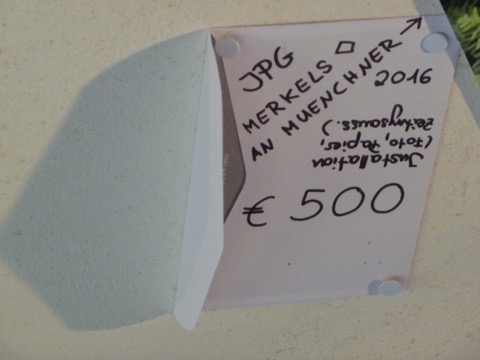 JPG
MERKELS ◇
AN MUENCHNER ↗
2016
Installation
(Foto, Papier,
Zeitungsauss.)
€ 500